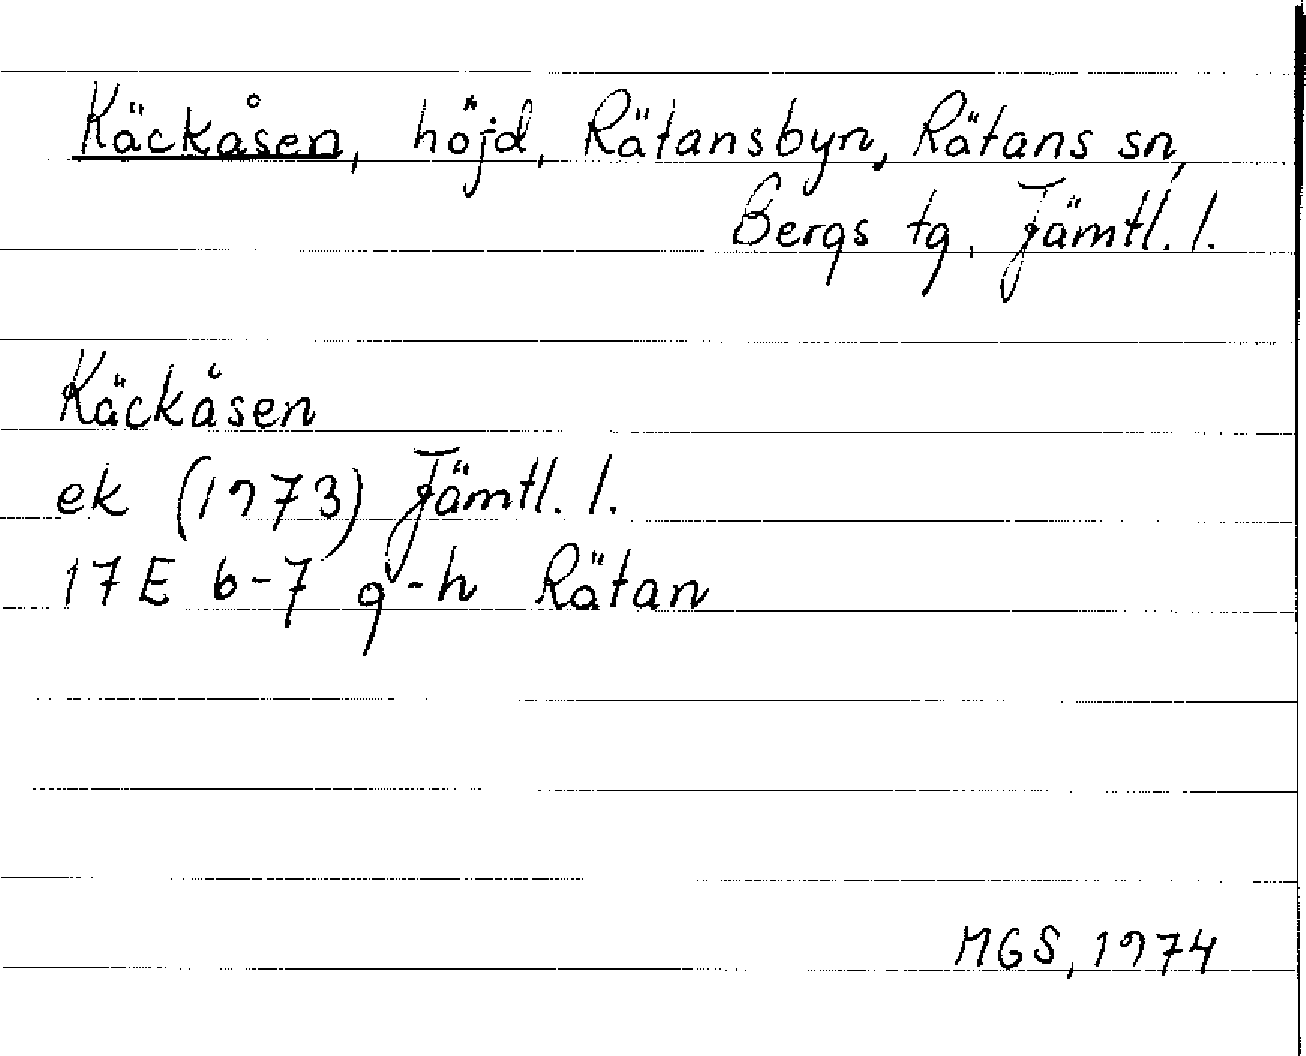 Käckåsen, höjd, Rätansbyn, Rätans sn,
Bergs tg, Jämtl. l.
Käckåsen
ek (1973) Jämtl. l.
17 E 6-7 g-h Rätan
MGS, 1974